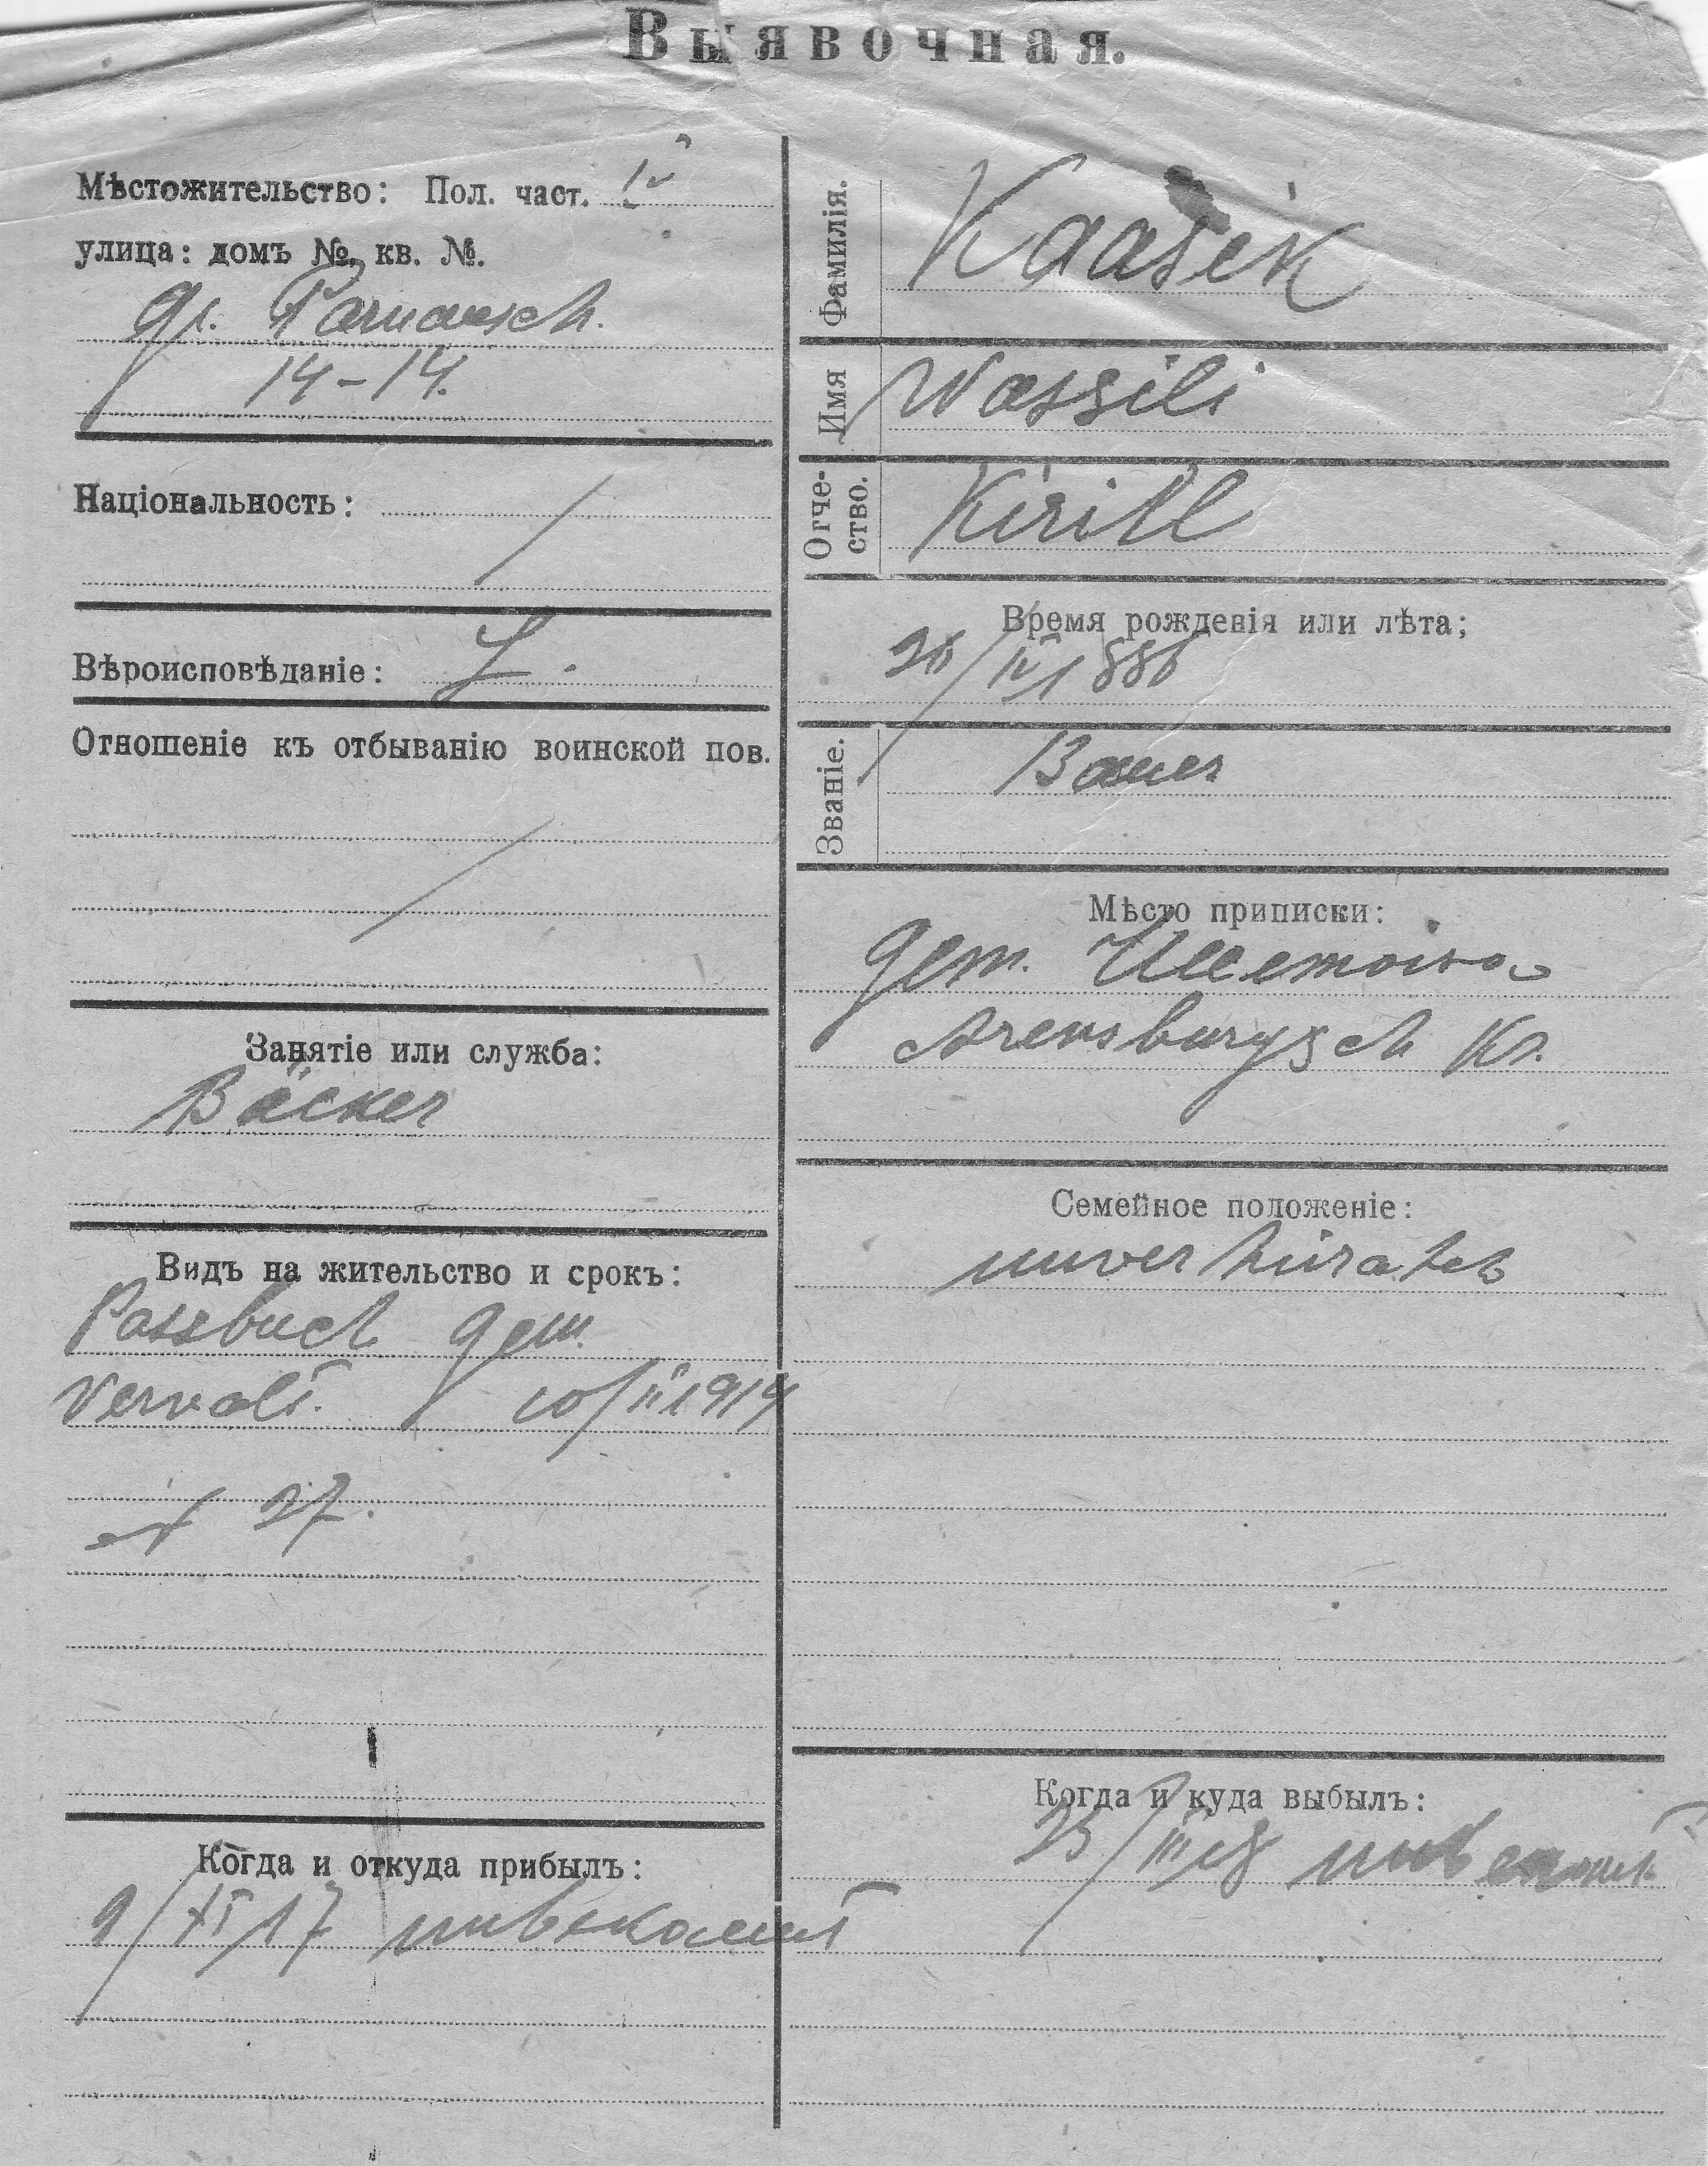 Выявочная.
Мѣстожительство: Пол. част. IV
улица: домъ №. кв. №.
gr. Parnausch.
14-14.
Національность: /
Вѣроисповѣданіе: L.
Отношеніе къ отбыванію воинской пов.
/
Занятіе или служба:
Bäcker
Видъ на жительство и срокъ:
Passbuch gem.
Vervalt. 10/II 1914
№ 27.
Когда и откуда прибылъ:
9/XI 17 unbekannt
Фамилія. Kaasik
Имя Wassili
Отче-ство. Kirill
Время рожденія или лѣта;
26/IV 1886
Званіе. Bauer
Мѣсто приписки:
gem.
Arensburgsch Kr.
Семейное положеніе:
unverhiratet
Когда и куда выбылъ:
25/III 18 unbekannt